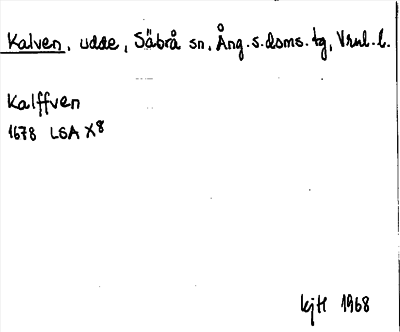 Kalven, udde, Säbrå sn, Ång.s.doms.tg, Vrnl.l.
Kalffven
1678 LSA X8
kjH 1968